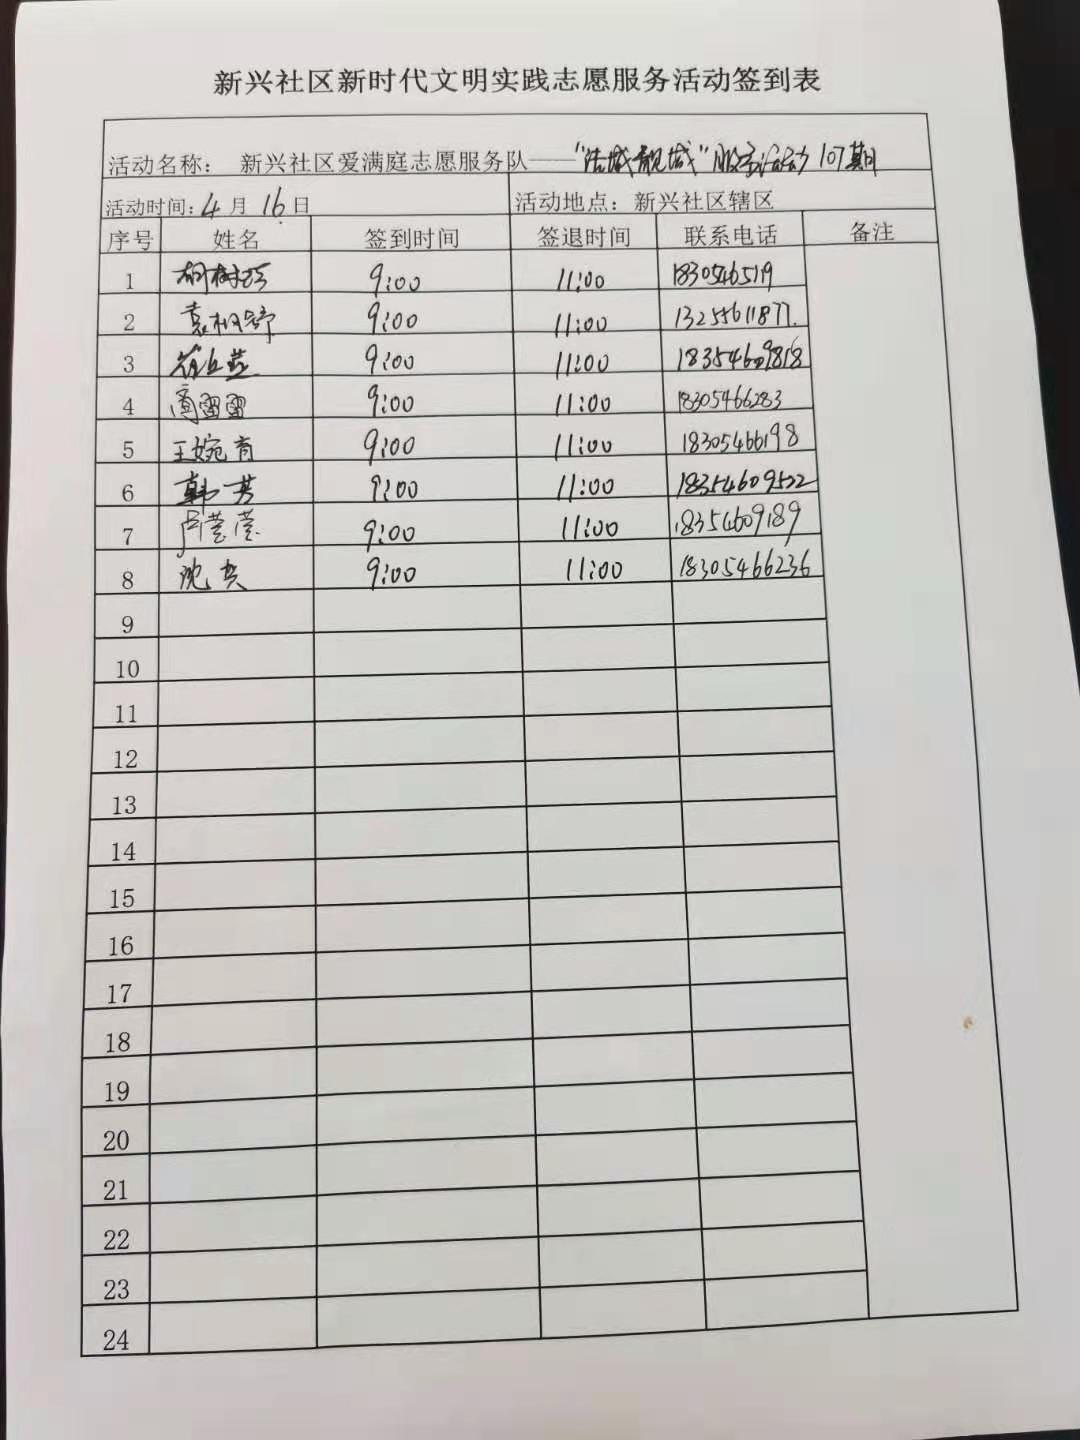 新兴社区新时代文明实践志愿服务活动签到表
活动名称： 新兴社区爱满庭志愿服务队——“洁城靓城”服务活动107期
活动时间：4月16日 活动地点：新兴社区辖区
序号 姓名 签到时间 签退时间 联系电话 备注
1 9:00 11:00 1830546519
2 9:00 11:00 13255611877
3 9:00 11:00
4 周雷雷 9:00 11:00 18305466283
5 王婉育 9:00 11:00 18305466198
6 韩芳 9:00 11:00 18354609522
7 卢莹莹 9:00 11:00 18354609189
8 9:00 11:00 18305466236
9
10
11
12
13
14
15
16
17
18
19
20
21
22
23
24